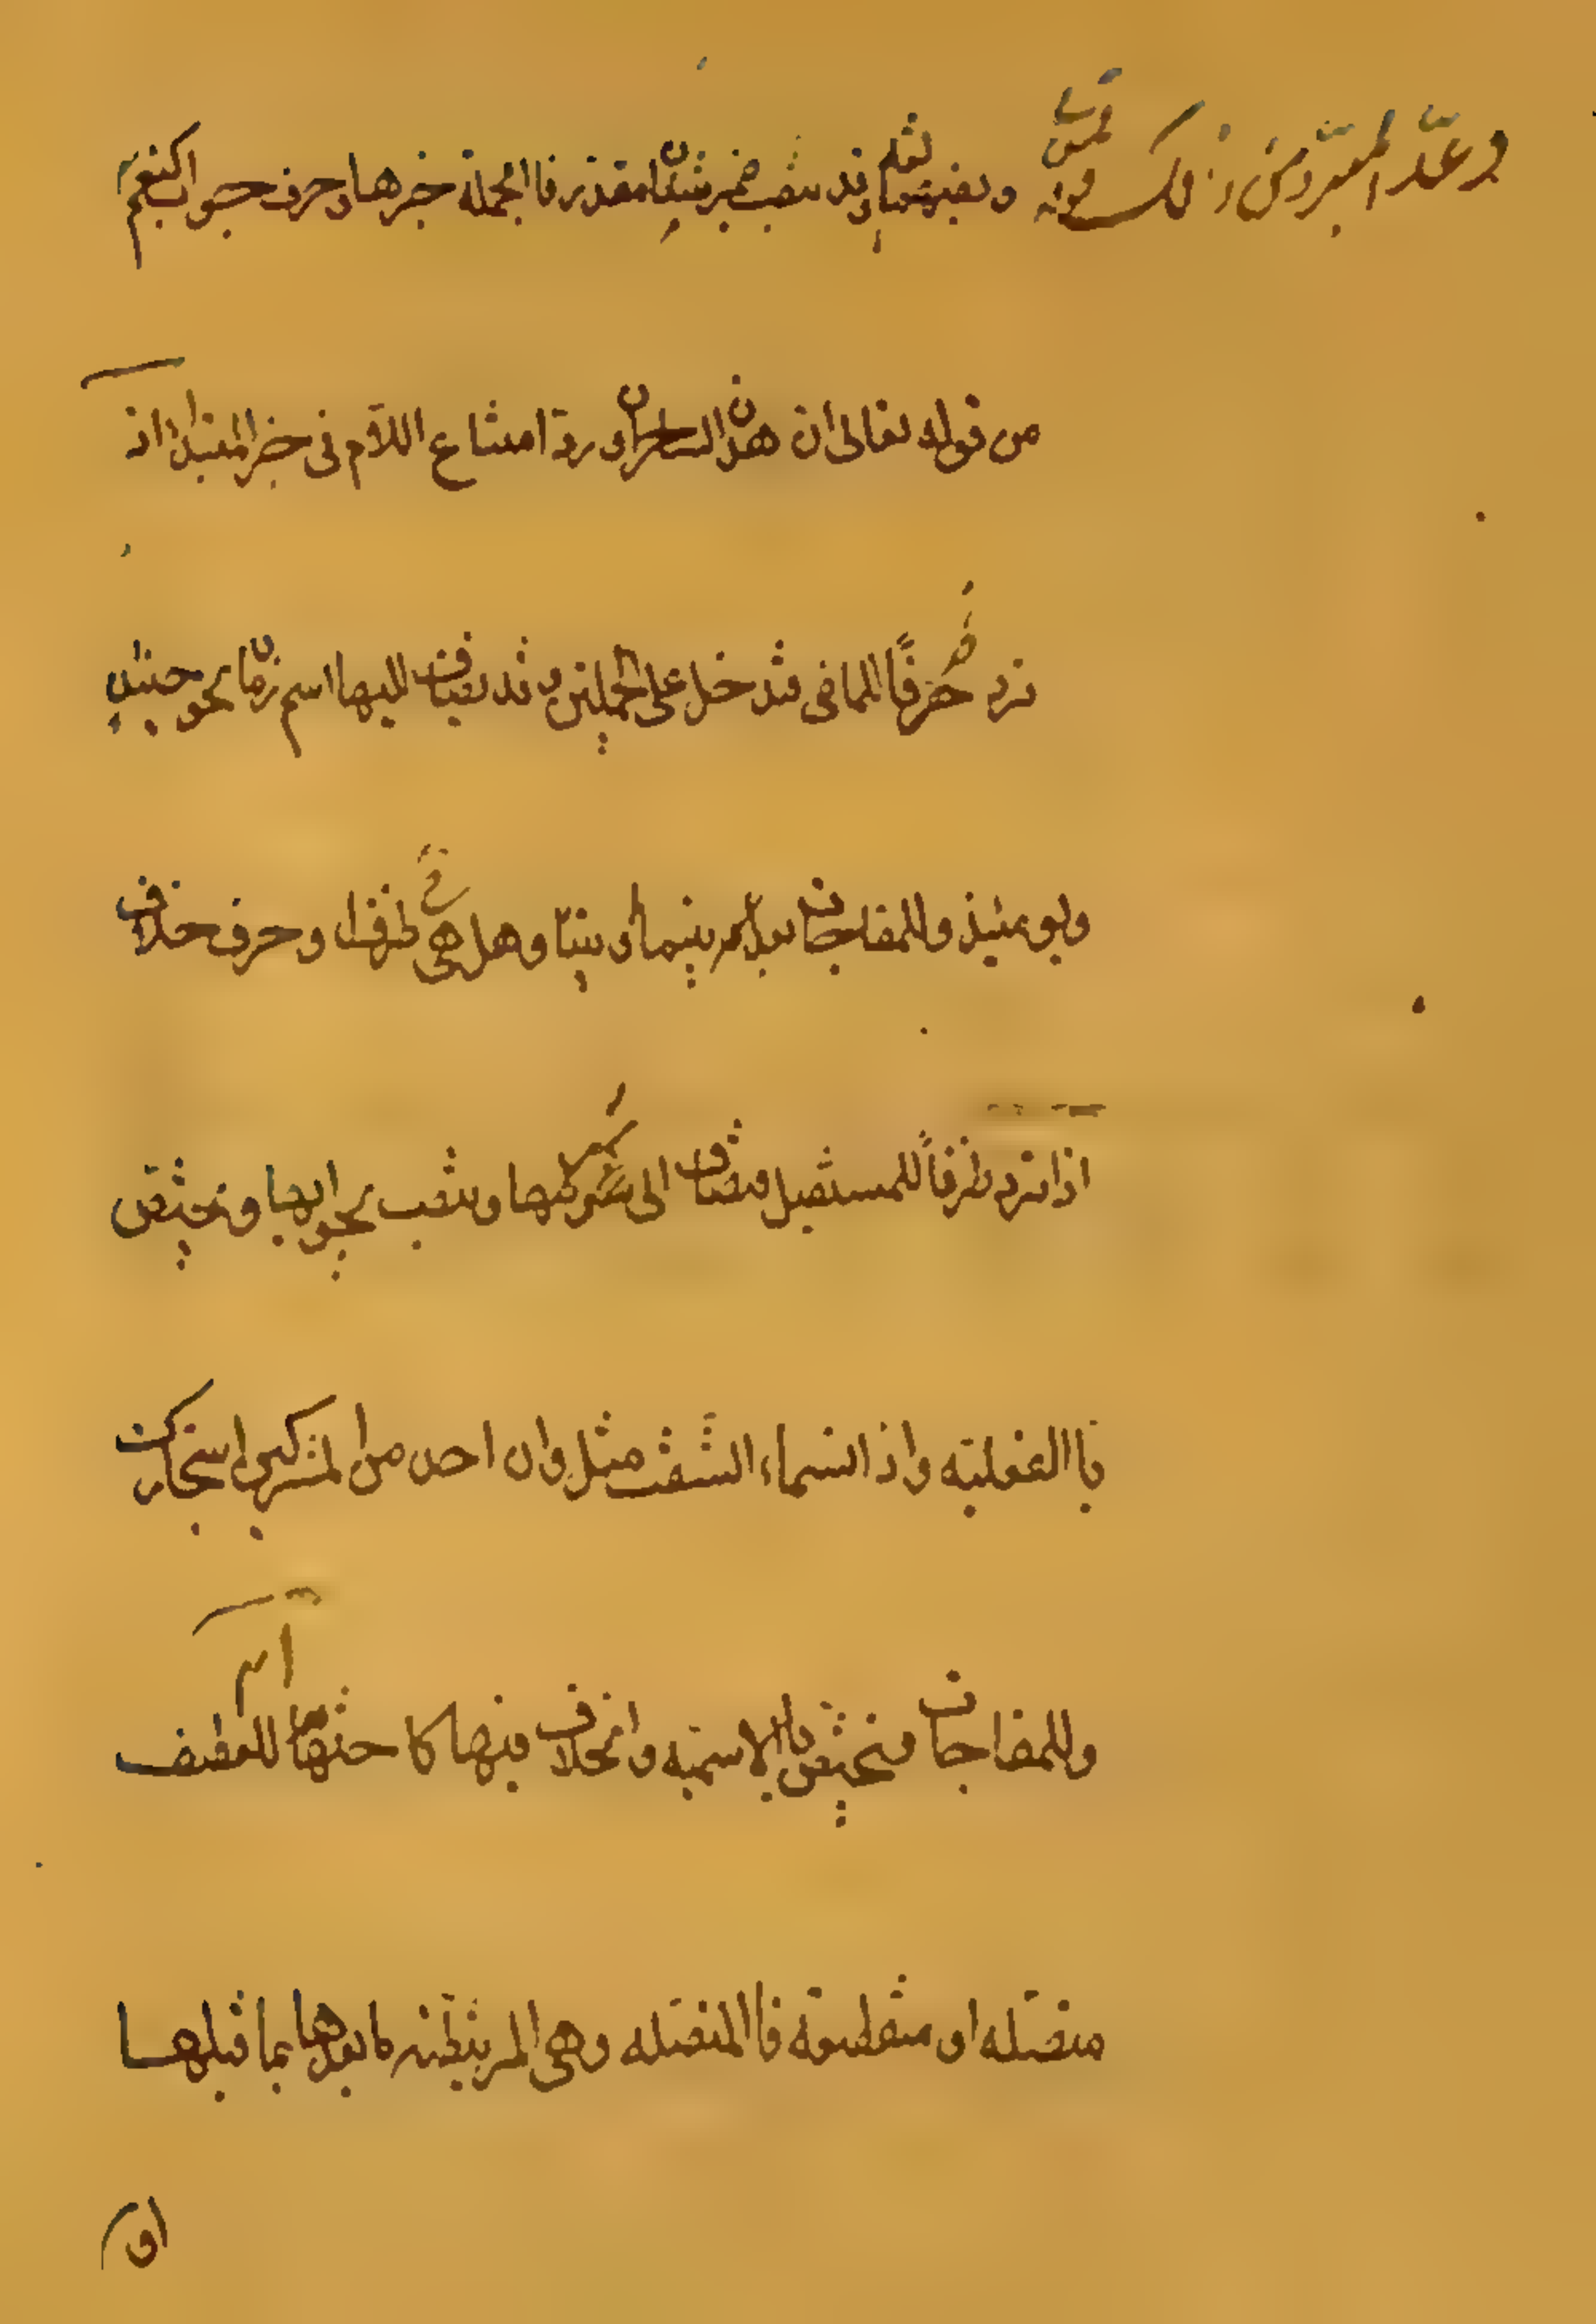 وعدّ المبرّد من ذلك قوله وقد تنصب ضمير شان مقدر فالجملة خبرها وحرف جواب كنعم
من قوله تعالى ان هذان لساحران و ردّ امتناع اللام فى خبر المبتدا اذ
ترد ظرفًا للماضى فتدخل على الجملتين وقد يضاف اليها اسم زمان نحو حينئذٍ
ويومئذ وللمفاجاة بعد بينما او بينا وهل هى ظرف او حرف خلاف
اذا ترد ظرفاً للمستقبل فتضاف الى شرطها وتنصب بجوابها وتختصّ
بالفعلية واذا السماء انشقت مثل وان احد من المشركين استجارك
وللمفاجاة فتختصّ بالاسمية والخلاف فيها كاختها ام للعطف
متصله او منقطعة فالمتصله وهى المرتبطة مابعدها بما قبلها